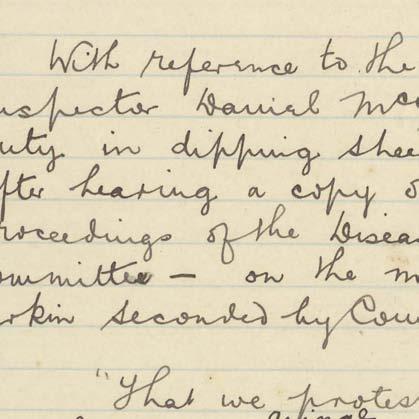 With reference to the
nspector Daniel McC
uty in dipping shee
fter hearing a copy o
roceedings of the Disea
ommittee — on the m
rkin seconded by Cou
"That we protes